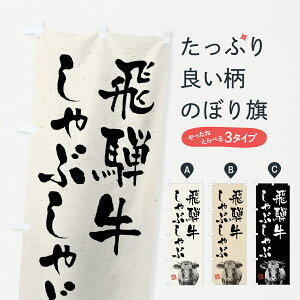 飛騨牛
しゃぶしゃぶ
たっぷり
良い柄
のぼり旗
やったね
えらべる3タイプ
A
B
C
飛騨牛
しゃぶしゃぶ
飛騨牛
しゃぶしゃぶ
飛騨牛
しゃぶしゃぶ